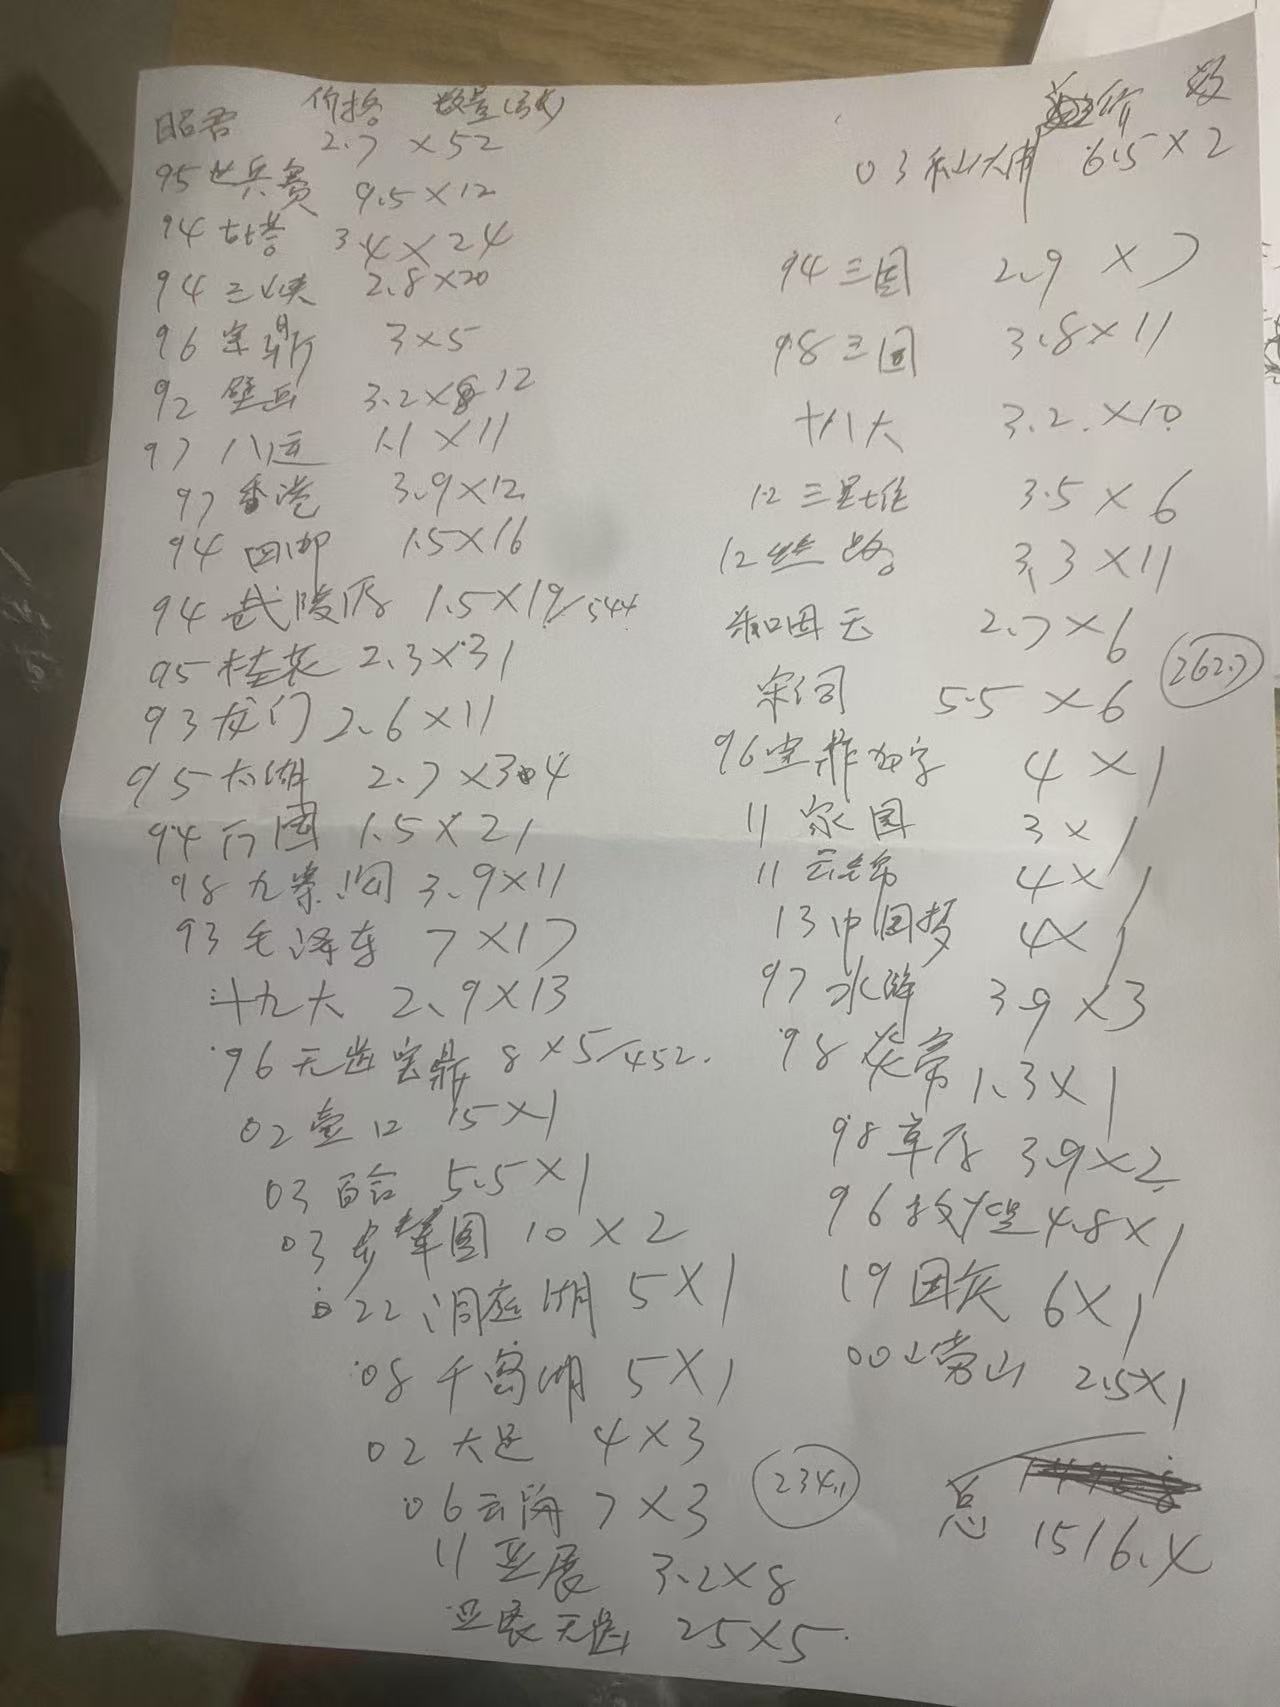 价格 数量(张)
昭君 2.7 × 52
95世兵赛 9.5×12
94古塔 3.4×24
94三峡 2.8×20
96宝鼎 3×5
92壁画 3.2× 12
97八运 1.1×11
97香港 3.9×12
94四邮 1.5×16
94武陵源 1.5×19/544
95桂花 2.3×31
93龙门 2.6×11
95太湖 2.7×34
94三国 1.5×21
98九寨沟 3.9×11
93毛泽东 7×17
十九大 2.9×13
96无齿宝鼎 8×5/452.
02壶口 5×1
03百合 5.5×1
03步辇图 10×2
22洞庭湖 5×1
08千岛湖 5×1
02大足 4×3
06云冈 7×3
2341
11亚展 3.2×8
亚展无齿 25×5
价 数
03 6.5×2
94三国 2.9×7
98三国 3.8×11
十八大 3.2×10
12三星堆 3.5×6
12丝路 3.3×11
和田玉 2.7×6
宋词 5.5×6
262.7
96宝鼎加字 4×1
11家园 3×1
11云锦 4×1
13中国梦 4×1
97水浒 3.9×3
98炎帝 1.3×1
98草原 3.9×2
96敦煌 4.8×1
19国庆 6×1
00崂山 2.5×1
总 1516.4